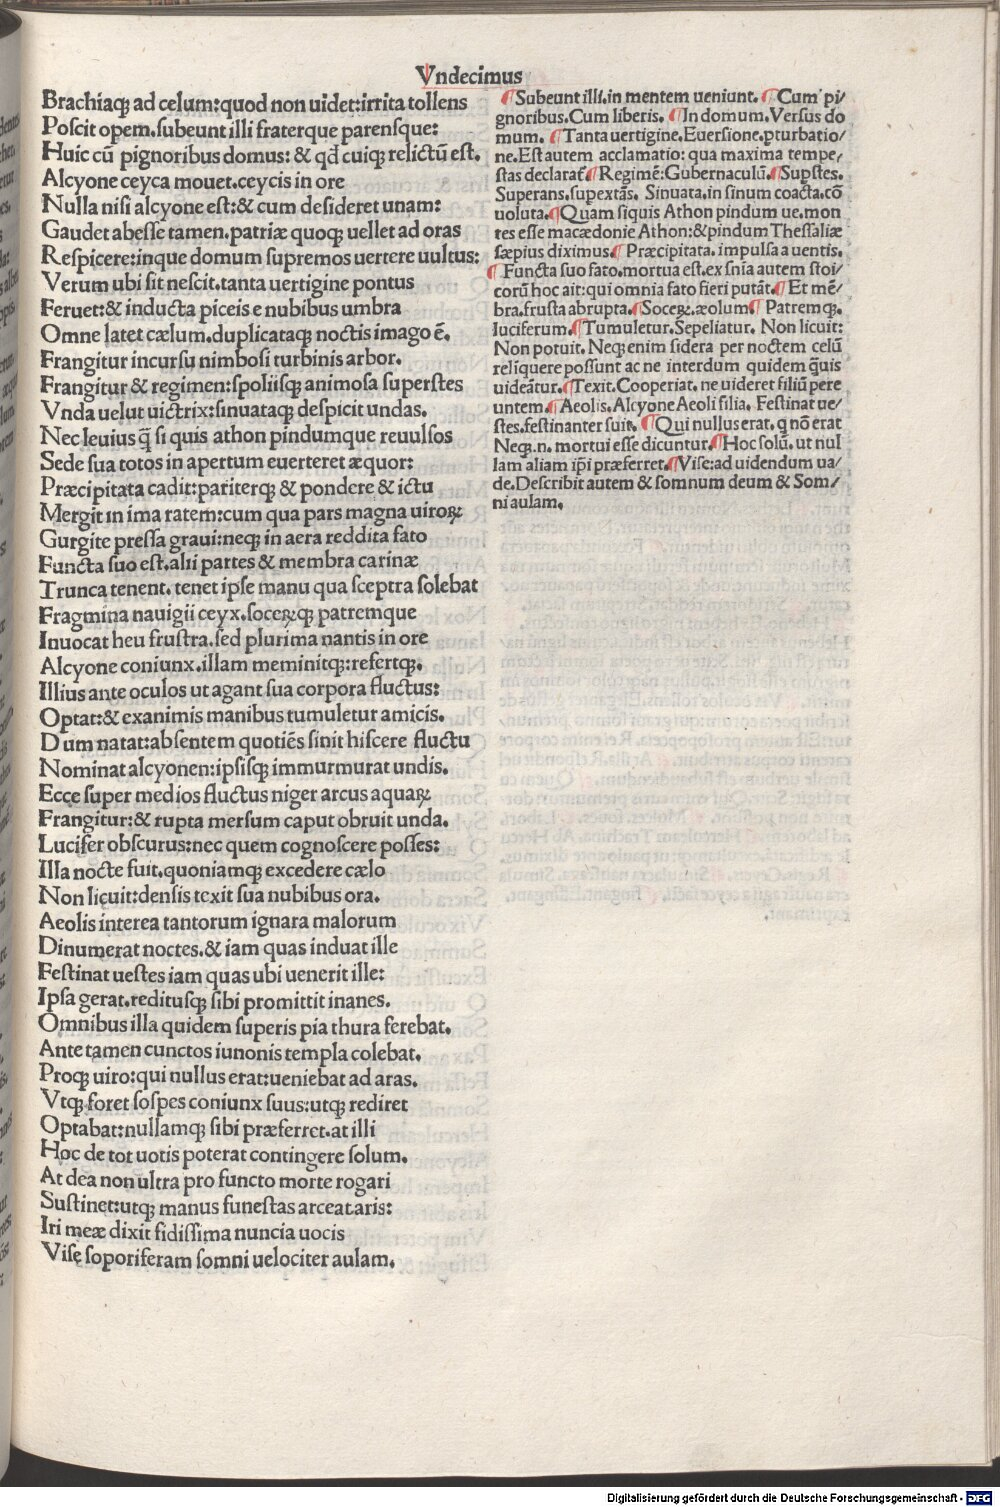 Vndecimus
Brachiaqꝫ ad celum:quod non uidet:irrita tollens
Poscit opem.subeunt illi fraterque parensque:
Huic cũ pignoribus domus: & qđ cuiqꝫ relictũ est.
Alcyone ceyca mouet.ceycis in ore
Nulla nisi alcyone est:& cum desideret unam:
Gaudet abesse tamen.patriæ quoqꝫ uellet ad oras
Respicere:inque domum supremos uertere uultus:
Verum ubi sit nescit.tanta uertigine pontus
Feruet:& inducta piceis e nubibus umbra
Omne latet cælum.duplicataqꝫ noctis imago ẽ.
Frangitur incursu nimbosi turbinis arbor.
Frangitur & regimen:spoliisqꝫ animosa superstes
Vnda uelut uictrix:sinuataqꝫ despicit undas.
Nec leuius q̃ si quis athon pindumque reuulsos
Sede sua totos in apertum euerteret æquor:
Præcipitata cadit:pariterqꝫ & pondere & ictu
Mergit in ima ratem:cum qua pars magna uiroꝝ
Gurgite pressa graui:neqꝫ in aera reddita fato
Functa suo est.alii partes & membra carinæ
Trunca tenent. tenet ipse manu qua sceptra solebat
Fragmina nauigii ceyx.soceꝝqꝫ patremque
Inuocat heu frustra.sed plurima nantis in ore
Alcyone coniunx.illam meminitqꝫ:refertqꝫ.
Illius ante oculos ut agant sua corpora fluctus:
Optat:& exanimis manibus tumuletur amicis.
Dum natat:absentem quotiẽs sinit hiscere fluctu
Nominat alcyonen:ipsisqꝫ immurmurat undis.
Ecce super medios fluctus niger arcus aquaꝝ
Frangitur:& rupta mersum caput obruit unda.
Lucifer obscurus:nec quem cognoscere posses:
Illa nocte fuit.quoniamqꝫ excedere cælo
Non licuit:densis texit sua nubibus ora.
Aeolis interea tantorum ignara malorum
Dinumerat noctes.& iam quas induat ille
Festinat uestes iam quas ubi uenerit ille:
Ipsa gerat.reditusqꝫ sibi promittit inanes.
Omnibus illa quidem superis pia thura ferebat.
Ante tamen cunctos iunonis templa colebat.
Proqꝫ uiro:qui nullus erat:ueniebat ad aras.
Vtqꝫ foret sospes coniunx suus:utqꝫ rediret
Optabat:nullamqꝫ sibi præferret.at illi
Hoc de tot uotis poterat contingere solum.
At dea non ultra pro functo morte rogari
Sustinet:utqꝫ manus funestas arceat aris:
Iri meæ dixit fidissima nuncia uocis
Vise soporiferam somni uelociter aulam.
¶Subeunt illi.in mentem ueniunt. ¶Cum pi/
gnoribus.Cum liberis. ¶In domum.Versus do
mum. ¶Tanta uertigine.Euersione.pturbatio/
ne.Est autem acclamatio: qua maxima tempe/
stas declarat̃ ¶Regimẽ:Gubernaculũ.¶Supstes.
Superans.supextãs. Sinuata.in sinum coacta.cõ
uoluta.¶Quam siquis Athon pindum ue.mon
tes esse macædonie Athon:&pindum Thessaliæ
sæpius diximus.¶Præcipitata. impulsa a uentis.
¶Functa suo fato.mortua est.ex snia autem stoi/
corũ hoc ait:qui omnia fato fieri putãt.¶Et mẽ/
bra.frusta abrupta.¶Soceꝝ.æolum¶ Patremqꝫ.
luciferum.¶Tumuletur.Sepeliatur. Non licuit:
Non potuit. Neqꝫ enim sidera per noctem celũ
reliquere possunt ac ne interdum quidem q̃uis
uideãtur.¶Texit.Cooperiat. ne uideret filiũ pere
untem.¶Aeolis.Alcyone Aeoli filia. Festinat ue/
stes.festinanter suit. ¶Qui nullus erat. q nõ erat
Neqꝫ.n. mortui esse dicuntur.¶Hoc solũ. ut nul
lam aliam ip̃i præferret.¶Vise:ad uidendum ua/
de.Describit autem & somnum deum & Som/
ni aulam.
Digitalisierung gefördert durch die Deutsche Forschungsgemeinschaft - DFG